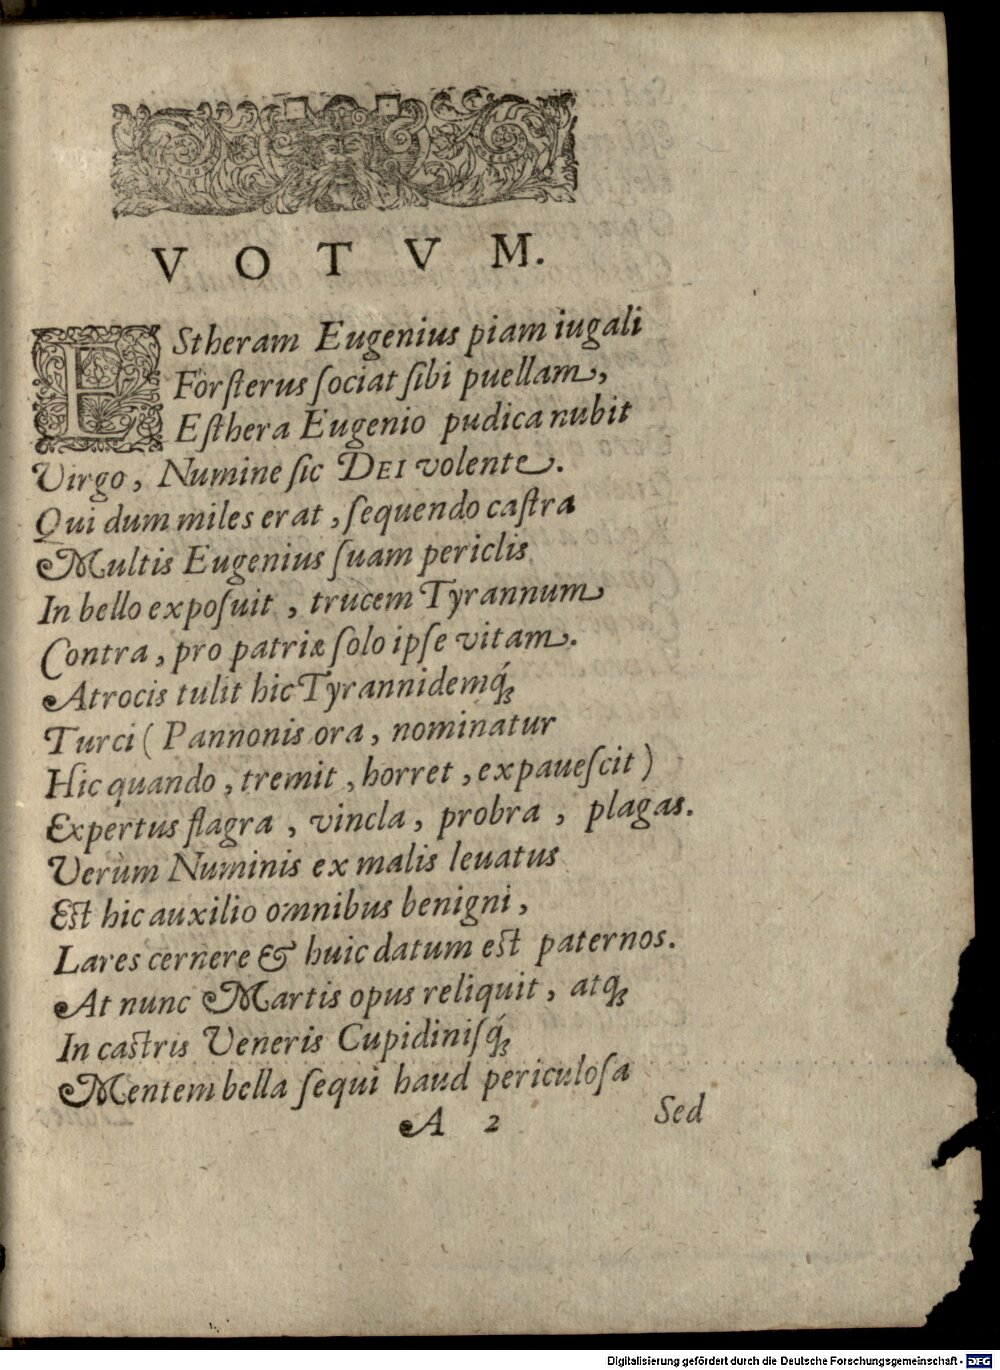 VOTVM.
EStheram Eugenius piam iugali
Forſterus ſociat ſibi puellam,
Eſthera Eugenio pudica nubit
Virgo, Numine ſic DEI volente.
Qui dum miles erat, ſequendo caſtra
Multis Eugenius ſuam periclis
In bello expoſuit, trucem Tyrannum
Contra, pro patriæ ſolo ipſe vitam.
Atrocis tulit hic Tyrannidemq́;
Turci (Pannonis ora, nominatur
Hic quando, tremit, horret, expaueſcit)
Expertus flagra, vincla, probra, plagas.
Verùm Numinis ex malis leuatus
Eſt hic auxilio omnibus benigni,
Lares cernere & huic datum eſt paternos.
At nunc Martis opus reliquit, atq;
In caſtris Veneris Cupidiniſq́;
Mentem bella ſequi haud periculoſa
A 2 Sed
Digitalisierung gefördert durch die Deutsche Forschungsgemeinschaft - DFG